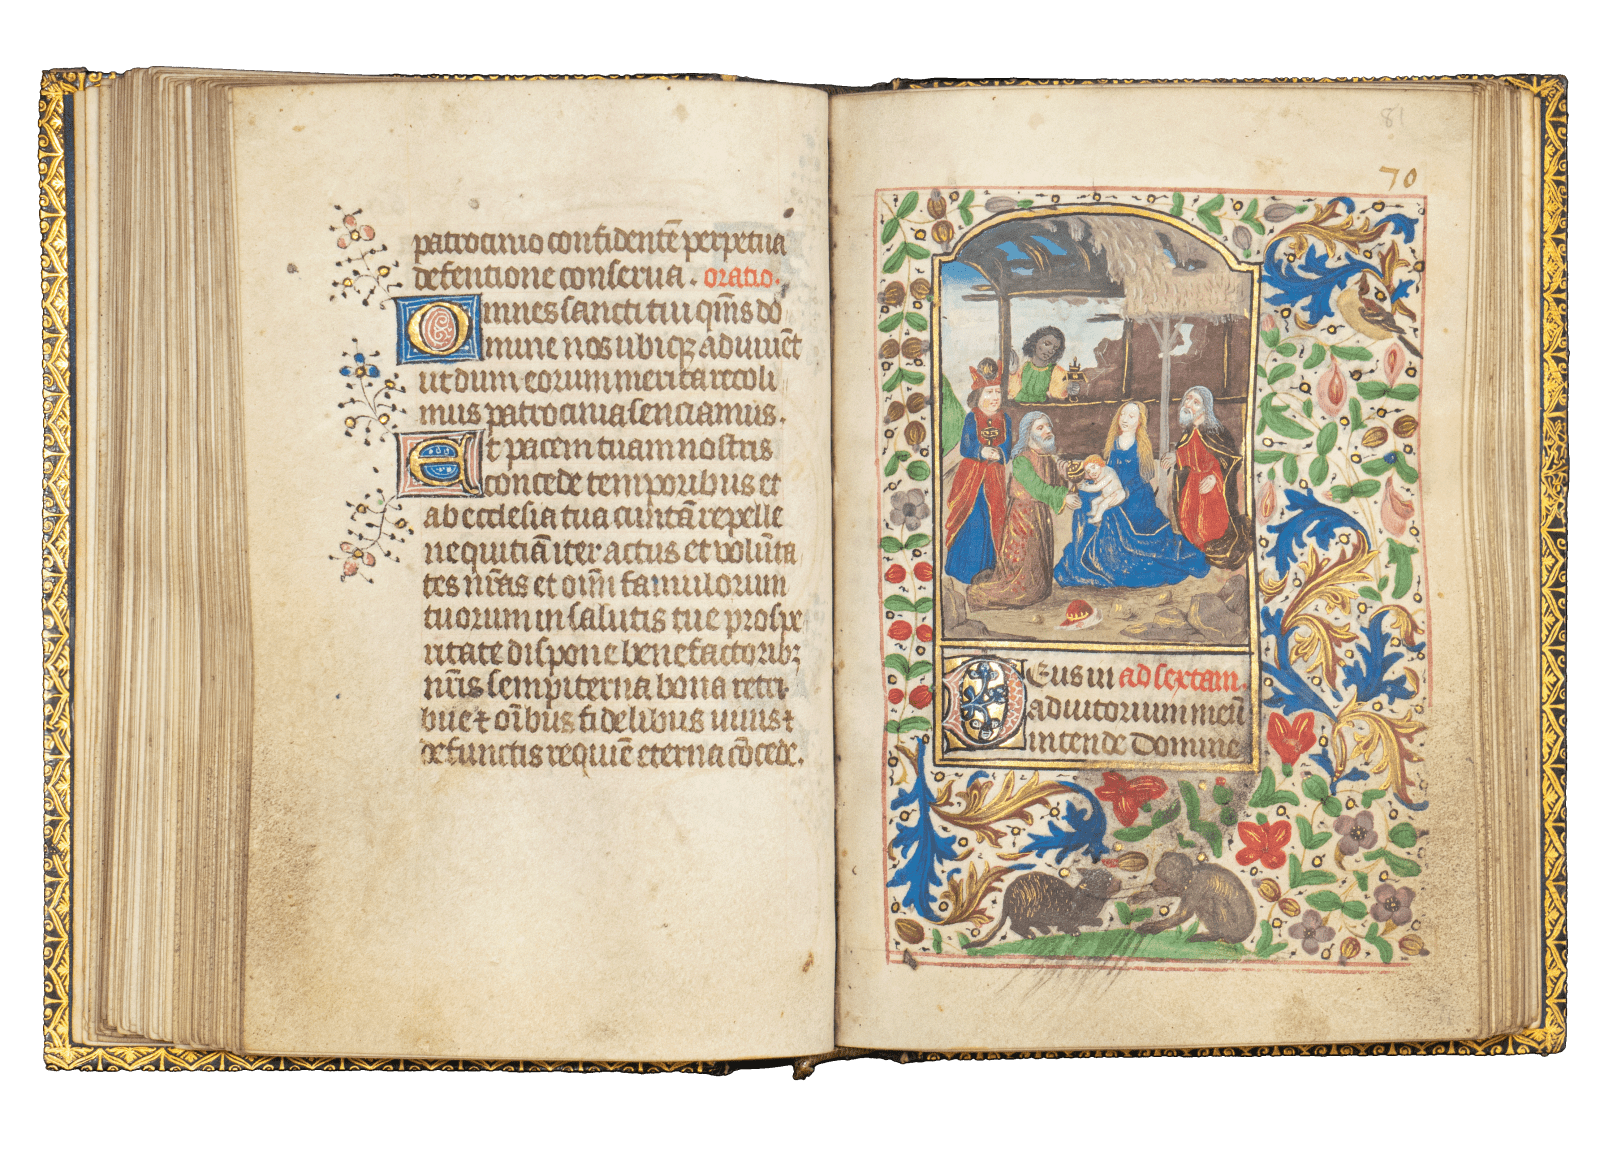 patrocinio confidentē perpetua
defentione conserua. oratio.
Omnes sancti tui qm̄s do
mine nos ubiqꝫ adiuuēt
ut dum eorum merita recoli
mus patrocinia senciamus.
Et pacem tuam nostris
concede temporibus et
ab ecclesia tua cunctā repelle
nequitiā iter actus et volūta
tes nr̄as et oīm famulorum
tuorum in salutis tue prospe
ritate dispone benefactoribꝫ
nr̄is sempiterna bona retri
bue ⁊ oībus fidelibus uiuis ⁊
defunctis requiē eterna cōcede.
81
70
Deus in ad sextam.
adiutorium meū
intende Domine